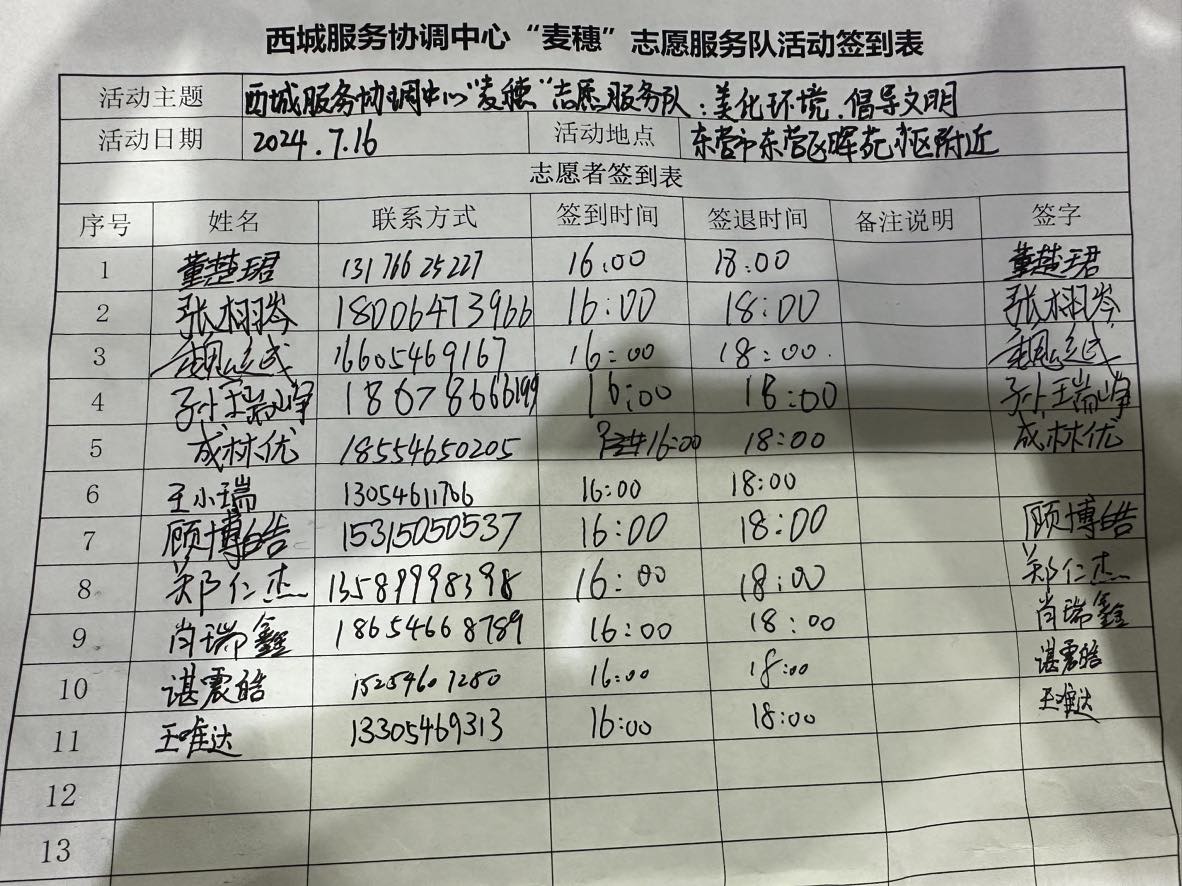 西城服务协调中心“麦穗”志愿服务队活动签到表
活动主题 西城服务协调中心“麦穗”志愿服务队：美化环境，倡导文明
活动日期 2024.7.16 活动地点 东营市东营区晖苑小区附近
志愿者签到表
序号 姓名 联系方式 签到时间 签退时间 备注说明 签字
1 董楚珺 13176625227 16:00 18:00 董楚珺
2 张栩岑 18006473966 16:00 18:00 张栩岑
3 16605469167 16:00 18:00.
4 孙瑞峰 18678666199 16:00 18:00 孙瑞峰
5 成林优 18554650205 16:00 18:00 成林优
6 王小瑞 13054611706 16:00 18:00
7 顾博皓 15315050537 16:00 18:00 顾博皓
8 郑仁杰 13589998398 16:00 18:00 郑仁杰
9 肖瑞鑫 18654668789 16:00 18:00 肖瑞鑫
10 谌震皓 15254601280 16:00 18:00 谌震皓
11 王唯达 13305469313 16:00 18:00 王唯达
12
13